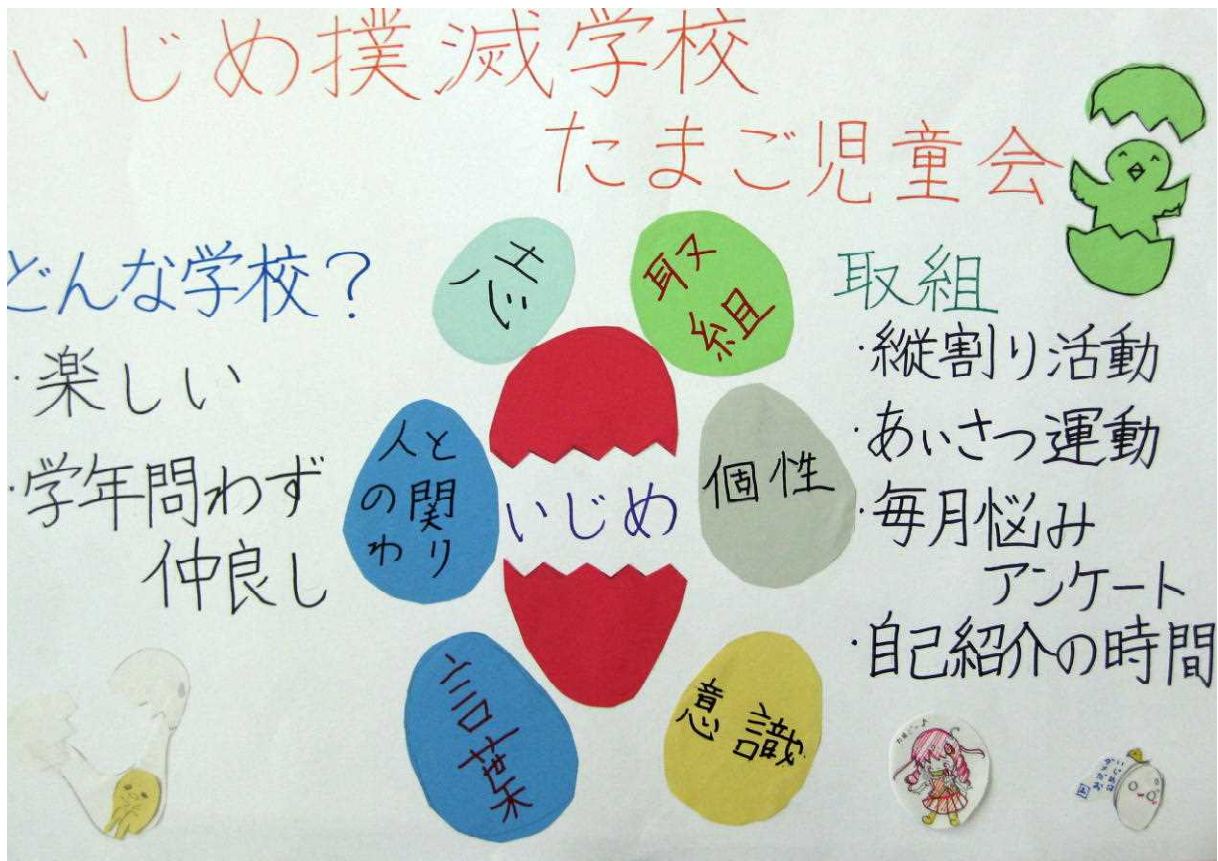 いじめ撲滅学校
たまご児童会
どんな学校？
・楽しい
・学年問わず
仲良し
志
取
組
人と
の関
わり
いじめ
個性
言葉
意識
取組
・縦割り活動
・あいさつ運動
・毎月悩み
アンケート
・自己紹介の時間